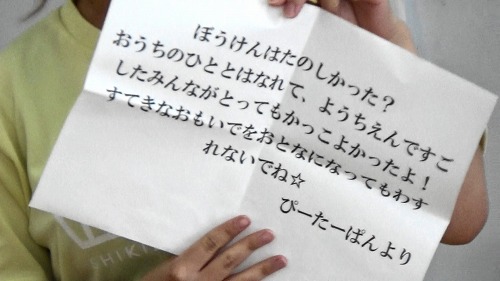 ぼうけんはたのしかった？
おうちのひととはなれて、ようちえんですご
したみんながとってもかっこよかったよ！
すてきなおもいでをおとなになってもわす
れないでね☆
ぴーたーぱんより